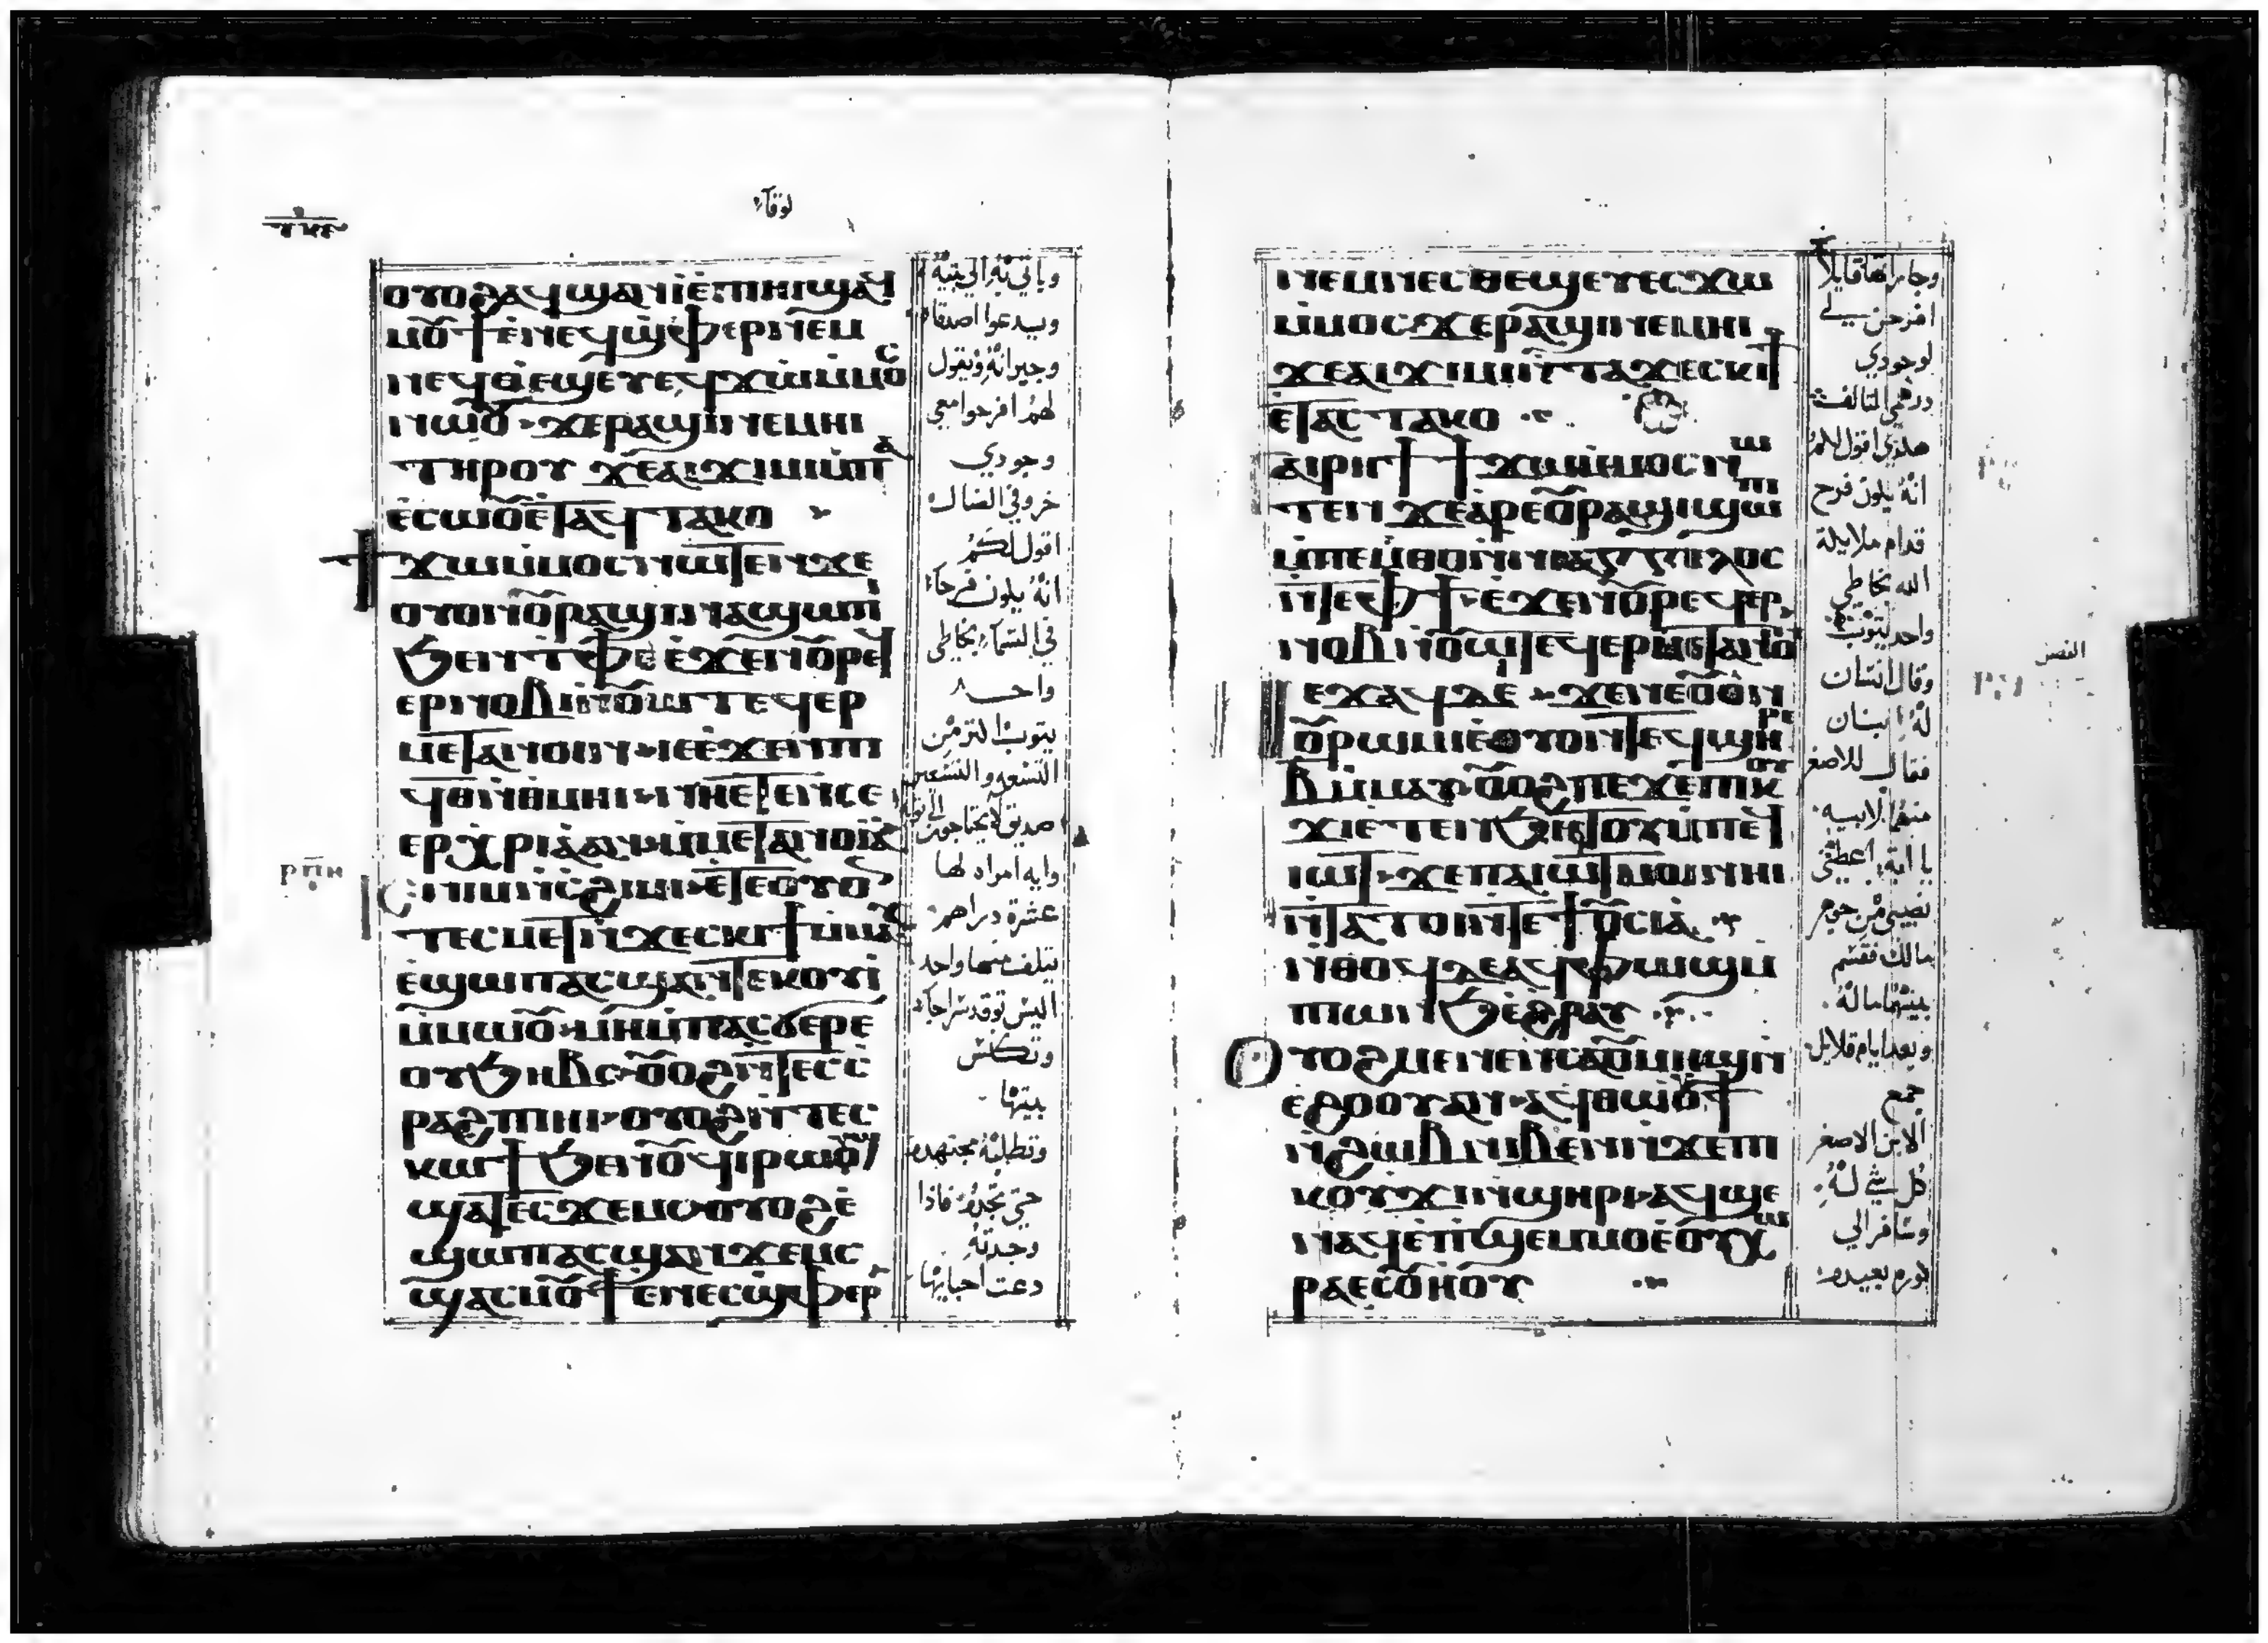 لوقا
ⲟⲩⲟϩ ⲁϥϣⲁⲛⲓ ⲉⲡⲏⲓ ϣⲁϥ
ⲙⲟⲩϯ ⲉⲛⲉϥϣⲫⲉⲣ ⲛⲉⲙ
ⲛⲉϥⲑⲉϣⲉⲩ ⲉϥϫⲱ ⲙⲙⲟⲥ
ⲛⲱⲟⲩ ϫⲉ ⲣⲁϣⲓ ⲛⲉⲙⲏⲓ
ⲧⲏⲣⲟⲩ ϫⲉ ⲁⲓϫⲓⲙⲓ ⲙⲡⲁ
ⲉⲥⲱⲟⲩ ⲉⲧⲁϥⲧⲁⲕⲟ
ϯϫⲱ ⲙⲙⲟⲥ ⲛⲱⲧⲉⲛ ϫⲉ
ⲟⲩⲟⲛ ⲟⲩⲣⲁϣⲓ ⲛⲁϣⲱⲡⲓ
ϧⲉⲛ ⲧⲫⲉ ⲉϫⲉⲛ ⲟⲩⲣⲉϥ
ⲉⲣⲛⲟⲃⲓ ⲛⲟⲩⲱⲧ ⲧⲉϥⲉⲣ
ⲙⲉⲧⲁⲛⲟⲓⲛ ⲓⲉ ⲉϫⲉⲛ ⲡⲓ
ϥⲑ ⲛⲑⲙⲏⲓ ⲛⲏ ⲉⲧⲉ ⲛⲥⲉ
ⲉⲣⲭⲣⲓⲁ ⲁⲛ ⲙⲙⲉⲧⲁⲛⲟⲓⲁ
ⲣⲡⲏ
ⲓⲉ ⲛⲓⲙ ⲛⲥϩⲓⲙⲓ ⲉⲧⲉ ⲟⲩⲟ
ⲧⲉⲥ ⲙⲉⲧ ⲛϫⲉⲥⲕⲓⲧϯ ⲙⲙⲁⲩ
ⲉϣⲱⲡ ⲁⲥϣⲁⲛⲧⲉⲕ ⲟⲩⲓ
ⲙⲙⲱⲟⲩ ⲙⲏ ⲙⲡⲁⲥϭⲉⲣⲉ
ⲟⲩϧⲏⲃⲥ ⲟⲩⲟϩ ⲛⲧⲉⲥⲥ
ⲣⲁϩ ⲡⲓⲏⲓ ⲟⲩⲟϩ ⲛⲧⲉⲥ
ⲕⲱϯ ϧⲉⲛ ⲟⲩϥⲓⲣⲱⲟⲩϣ
ϣⲁⲧⲉⲥϫⲉⲙⲥ ⲟⲩⲟϩ ⲉ
ϣⲱⲡ ⲁⲥϣⲁⲛϫⲉⲙⲥ
ϣⲁⲥⲙⲟⲩϯ ⲉⲛⲉⲥϣⲫⲉⲣ
وياتي به الي بيته
ويدعوا اصدقا
وجيرانه ويقول
لهم افرحوا معي
وجودي
خروفي الضال
اقول لكم
انه يكون فرحا
في السماء بخاطي
واحد
يتوب اكثر من
التسعه والتسعين
صديق لا يحتاجون الي توبه
وايه امراه لها
عشرة دراهم
يتلف منها واحد
اليس توقد سراجا
وتكنس
بيتها
وتطلبه مجتهده
حتي تجده فاذا
وجدته
دعت احبايها
ⲛⲉⲙ ⲛⲉⲥⲑⲉϣⲉⲩ ⲉⲥϫⲱ
ⲙⲙⲟⲥ ϫⲉ ⲣⲁϣⲓ ⲛⲉⲙⲏⲓ
ϫⲉ ⲁⲓϫⲓⲙⲓ ⲛⲧⲁϫⲉⲥⲕⲓϯ
ⲉⲧⲁⲥⲧⲁⲕⲟ
ⲡⲁⲓⲣⲏϯ ϯϫⲱ ⲙⲙⲟⲥ ⲛⲱ
ⲧⲉⲛ ϫⲉ ⲁⲣⲉ ⲟⲩⲣⲁϣⲓ ϣⲱⲡⲓ
ⲙⲡⲉⲙⲑⲟ ⲛⲛⲓⲁⲅⲅⲉⲗⲟⲥ
ⲛⲧⲉ ⲫϯ ⲉϫⲉⲛ ⲟⲩⲣⲉϥⲉⲣ
ⲛⲟⲃⲓ ⲛⲟⲩⲱⲧ ⲉϥⲉⲣⲙⲉⲧⲁⲛⲟ
ⲡⲉϫⲁϥ ⲇⲉ ϫⲉ ⲛⲉ ⲟⲩⲟⲛ
ⲟⲩⲣⲱⲙⲓ ⲉⲟⲩⲟⲛⲧⲉϥ ϣⲏⲣⲓ
ⲃ ⲙⲙⲁⲩ ⲟⲩⲟϩ ⲡⲉϫⲉ ⲡⲓⲕⲟⲩ
ϫⲓ ⲉⲧⲉⲛϧⲏⲧⲟⲩ ⲙⲡⲉϥ
ⲓⲱⲧ ϫⲉ ⲡⲁⲓⲱⲧ ⲙⲟⲓ ⲛⲏⲓ
ⲛⲧⲁⲧⲟⲓ ⲛⲧⲉ ϯⲟⲩⲥⲓⲁ
ⲛⲑⲟϥ ⲇⲉ ⲁϥⲫⲱϣ ⲙ
ⲡⲱⲛϧ ⲉϩⲣⲁⲩ
ⲟⲩⲟϩ ⲙⲉⲛⲉⲛⲥⲁ ⲟⲩⲙⲏϣ ⲛ
ⲉϩⲟⲟⲩ ⲁⲛ ⲁϥⲑⲱⲟⲩϯ
ⲛϩⲱⲃ ⲛⲓⲃⲉⲛ ⲛϫⲉ ⲡⲓ
ⲕⲟⲩϫⲓ ⲛϣⲏⲣⲓ ⲁϥϣⲉ
ⲛⲁϥ ⲉⲡϣⲉⲙⲙⲟ ⲉⲟⲩⲭⲱ
ⲣⲁ ⲉⲥⲟⲩⲏⲟⲩ
وجاراتها قايلا
افرحن لي
لوجودي
درهمي التالف
هكذي اقول لكم
انه يكون فرح
قدام ملايكة
الله بخاطي
واحد يتوب
وقال انسان
له ابنان
فقال للاصغر
منهما لابيه
يا ابتاه اعطني
نصيبي من جوهر
مالك فقسم
بينهما ماله
وبعد ايام قلايل
جمع
الابن الاصغر
كل شي له
وسافر الي
كوره بعيده
الفصل